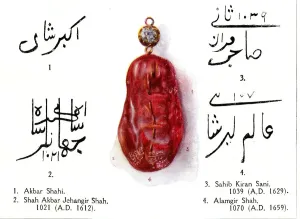 اکبر شاهی
1
۱۰۳۹ ثانی
صاحب قران
3.
اکبر شاه
جهانگیر شاه
۱۰۲۱
2.
عالمگیر شاه
4.
1. Akbar Shahi.
2. Shah Akbar Jehangir Shah,
1021 (A.D. 1612).
3. Sahib Kiran Sani.
1039 (A.D. 1629).
4. Alamgir Shah,
1070 (A.D. 1659).